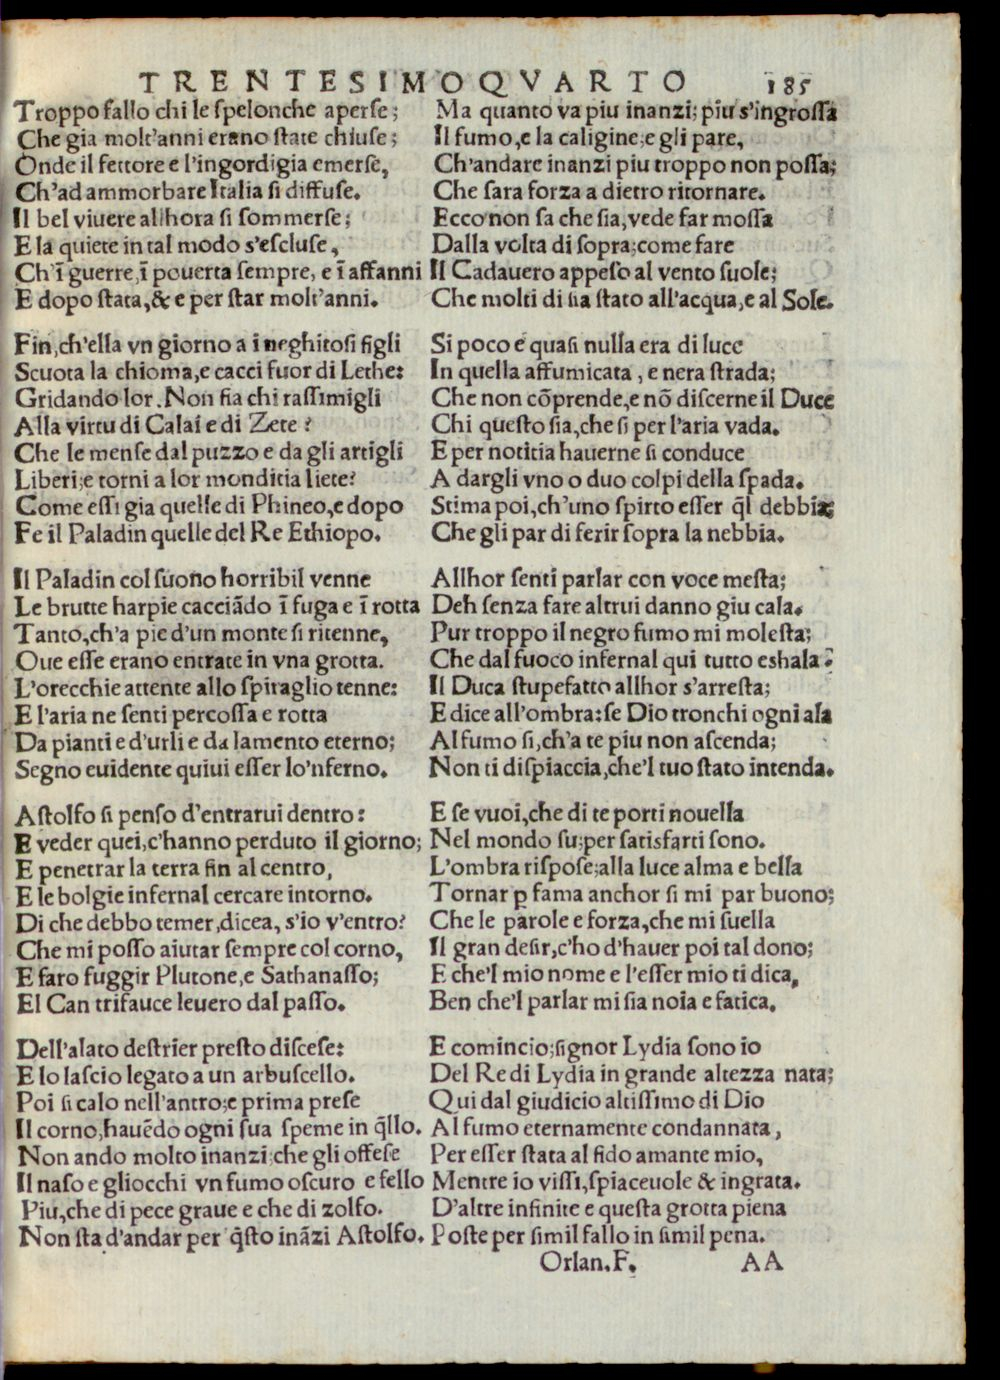 TRENTESIMOQVARTO 185
Troppo fallo chi le ſpelonche aperſe;
Che gia molt'anni erano ſtate chiuſe;
Onde il fettore e l'ingordigia emerſe,
Ch'ad ammorbare Italia ſi diffuſe.
Il bel viuere allhora ſi ſommerſe;
E la quiete in tal modo s'eſcluſe,
Ch'ī guerre,ī pouerta ſempre, e ī affanni
E dopo ſtata,& e per ſtar molt'anni.
Fin,ch'ella vn giorno a i neghitoſi figli
Scuota la chioma,e cacci fuor di Lethe:
Gridando lor. Non fia chi raſſimigli
Alla virtu di Calai e di Zete?
Che le menſe dal puzzo e da gli artigli
Liberi;e torni a lor monditia liete?
Come eſſi gia quelle di Phineo,e dopo
Fe il Paladin quelle del Re Ethiopo.
Il Paladin col ſuono horribil venne
Le brutte harpie cacciādo ī fuga e ī rotta
Tanto,ch'a pie d'un monte ſi ritenne,
Oue eſſe erano entrate in vna grotta.
L'orecchie attente allo ſpiraglio tenne:
E l'aria ne ſenti percoſſa e rotta
Da pianti e d'urli e da lamento eterno;
Segno euidente quiui eſſer lo'nferno.
Aſtolfo ſi penſo d'entrarui dentro:
E veder quei,c'hanno perduto il giorno;
E penetrar la terra fin al centro,
E le bolgie infernal cercare intorno.
Di che debbo temer,dicea, s'io v'entro?
Che mi poſſo aiutar ſempre col corno,
E faro fuggir Plutone,e Sathanaſſo;
El Can trifauce leuero dal paſſo.
Dell'alato deſtrier preſto diſceſe:
E lo laſcio legato a un arbuſcello.
Poi ſi calo nell'antro;e prima preſe
Il corno,hauēdo ogni ſua ſpeme in q̄llo.
Non ando molto inanzi;che gli offeſe
Il naſo e gliocchi vn fumo oſcuro e fello
Piu,che di pece graue e che di zolfo.
Non ſta d'andar per q̄ſto ināzi Aſtolfo.
Ma quanto va piu inanzi; piu s'ingroſſa
Il fumo,e la caligine;e gli pare,
Ch'andare inanzi piu troppo non poſſa;
Che ſara forza a dietro ritornare.
Ecco non ſa che ſia,vede far moſſa
Dalla volta di ſopra;come fare
Il Cadauero appeſo al vento ſuole;
Che molti di ſia ſtato all'acqua,e al Sole.
Si poco e quaſi nulla era di luce
In quella affumicata, e nera ſtrada;
Che non cōprende,e nō diſcerne il Duce
Chi queſto ſia,che ſi per l'aria vada.
E per notitia hauerne ſi conduce
A dargli vno o duo colpi della ſpada.
Stima poi,ch'uno ſpirto eſſer q̄l debbia;
Che gli par di ferir ſopra la nebbia.
Allhor ſenti parlar con voce meſta;
Deh ſenza fare altrui danno giu cala.
Pur troppo il negro fumo mi moleſta;
Che dal fuoco infernal qui tutto eshala.
Il Duca ſtupefatto allhor s'arreſta;
E dice all'ombra:ſe Dio tronchi ogni ala
Al fumo ſi,ch'a te piu non aſcenda;
Non ti diſpiaccia,che'l tuo ſtato intenda.
E ſe vuoi,che di te porti nouella
Nel mondo ſu;per ſatisfarti ſono.
L'ombra riſpoſe;alla luce alma e bella
Tornar ꝑ fama anchor ſi mi par buono;
Che le parole e forza,che mi ſuella
Il gran deſir,c'ho d'hauer poi tal dono;
E che'l mio nome e l'eſſer mio ti dica,
Ben che'l parlar mi ſia noia e fatica.
E comincio;ſignor Lydia ſono io
Del Re di Lydia in grande altezza nata;
Qui dal giudicio altiſſimo di Dio
Al fumo eternamente condannata,
Per eſſer ſtata al fido amante mio,
Mentre io viſſi,ſpiaceuole & ingrata.
D'altre infinite e queſta grotta piena
Poſte per ſimil fallo in ſimil pena.
Orlan.F. AA